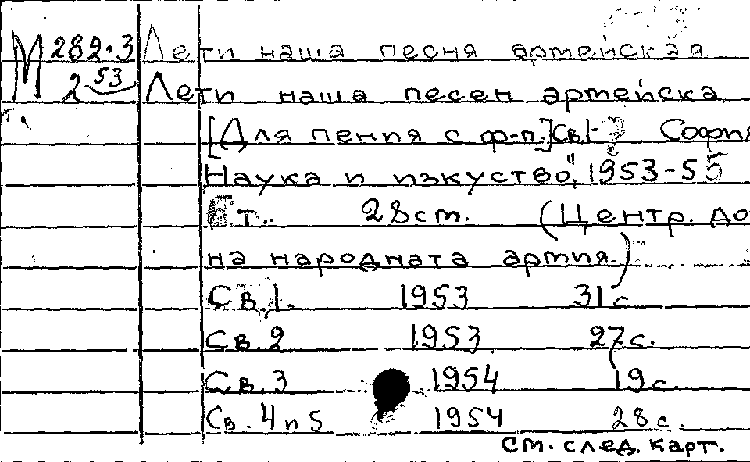 М 282.3 Лети наша песня артейская
2 53 Лети наша песен артейска
[Для пения с ф-п.] Св.1- София
"Наука и изкуство", 1953-55
т. 28 ст. (Центр. до
на народната армия.)
Св. 1. 1953 31 с.
Св. 2 1953 27 с.
Св. 3 1954 19 с.
Св. 4 и 5 1954 28 с.
см. след. карт.